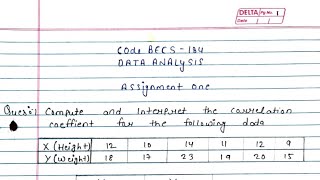 DELTA Pg No. 1
Date / /
Code BECS - 184
DATA ANALYSIS
Assignment one
Ques:1 Compute and Interpret the correlation
coeffient for the following data
X (Height) 12 10 14 11 12 9
Y (Weight) 18 17 23 19 20 15